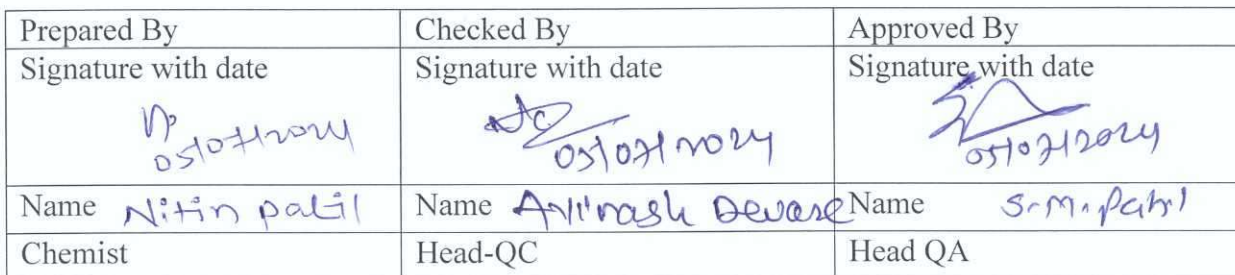 Prepared By Checked By Approved By
Signature with date Signature with date Signature with date
05/07/2024 05/07/2024 05/07/2024
Name Nitin patil Name Avinash Devare Name S.M. Patil
Chemist Head-QC Head QA